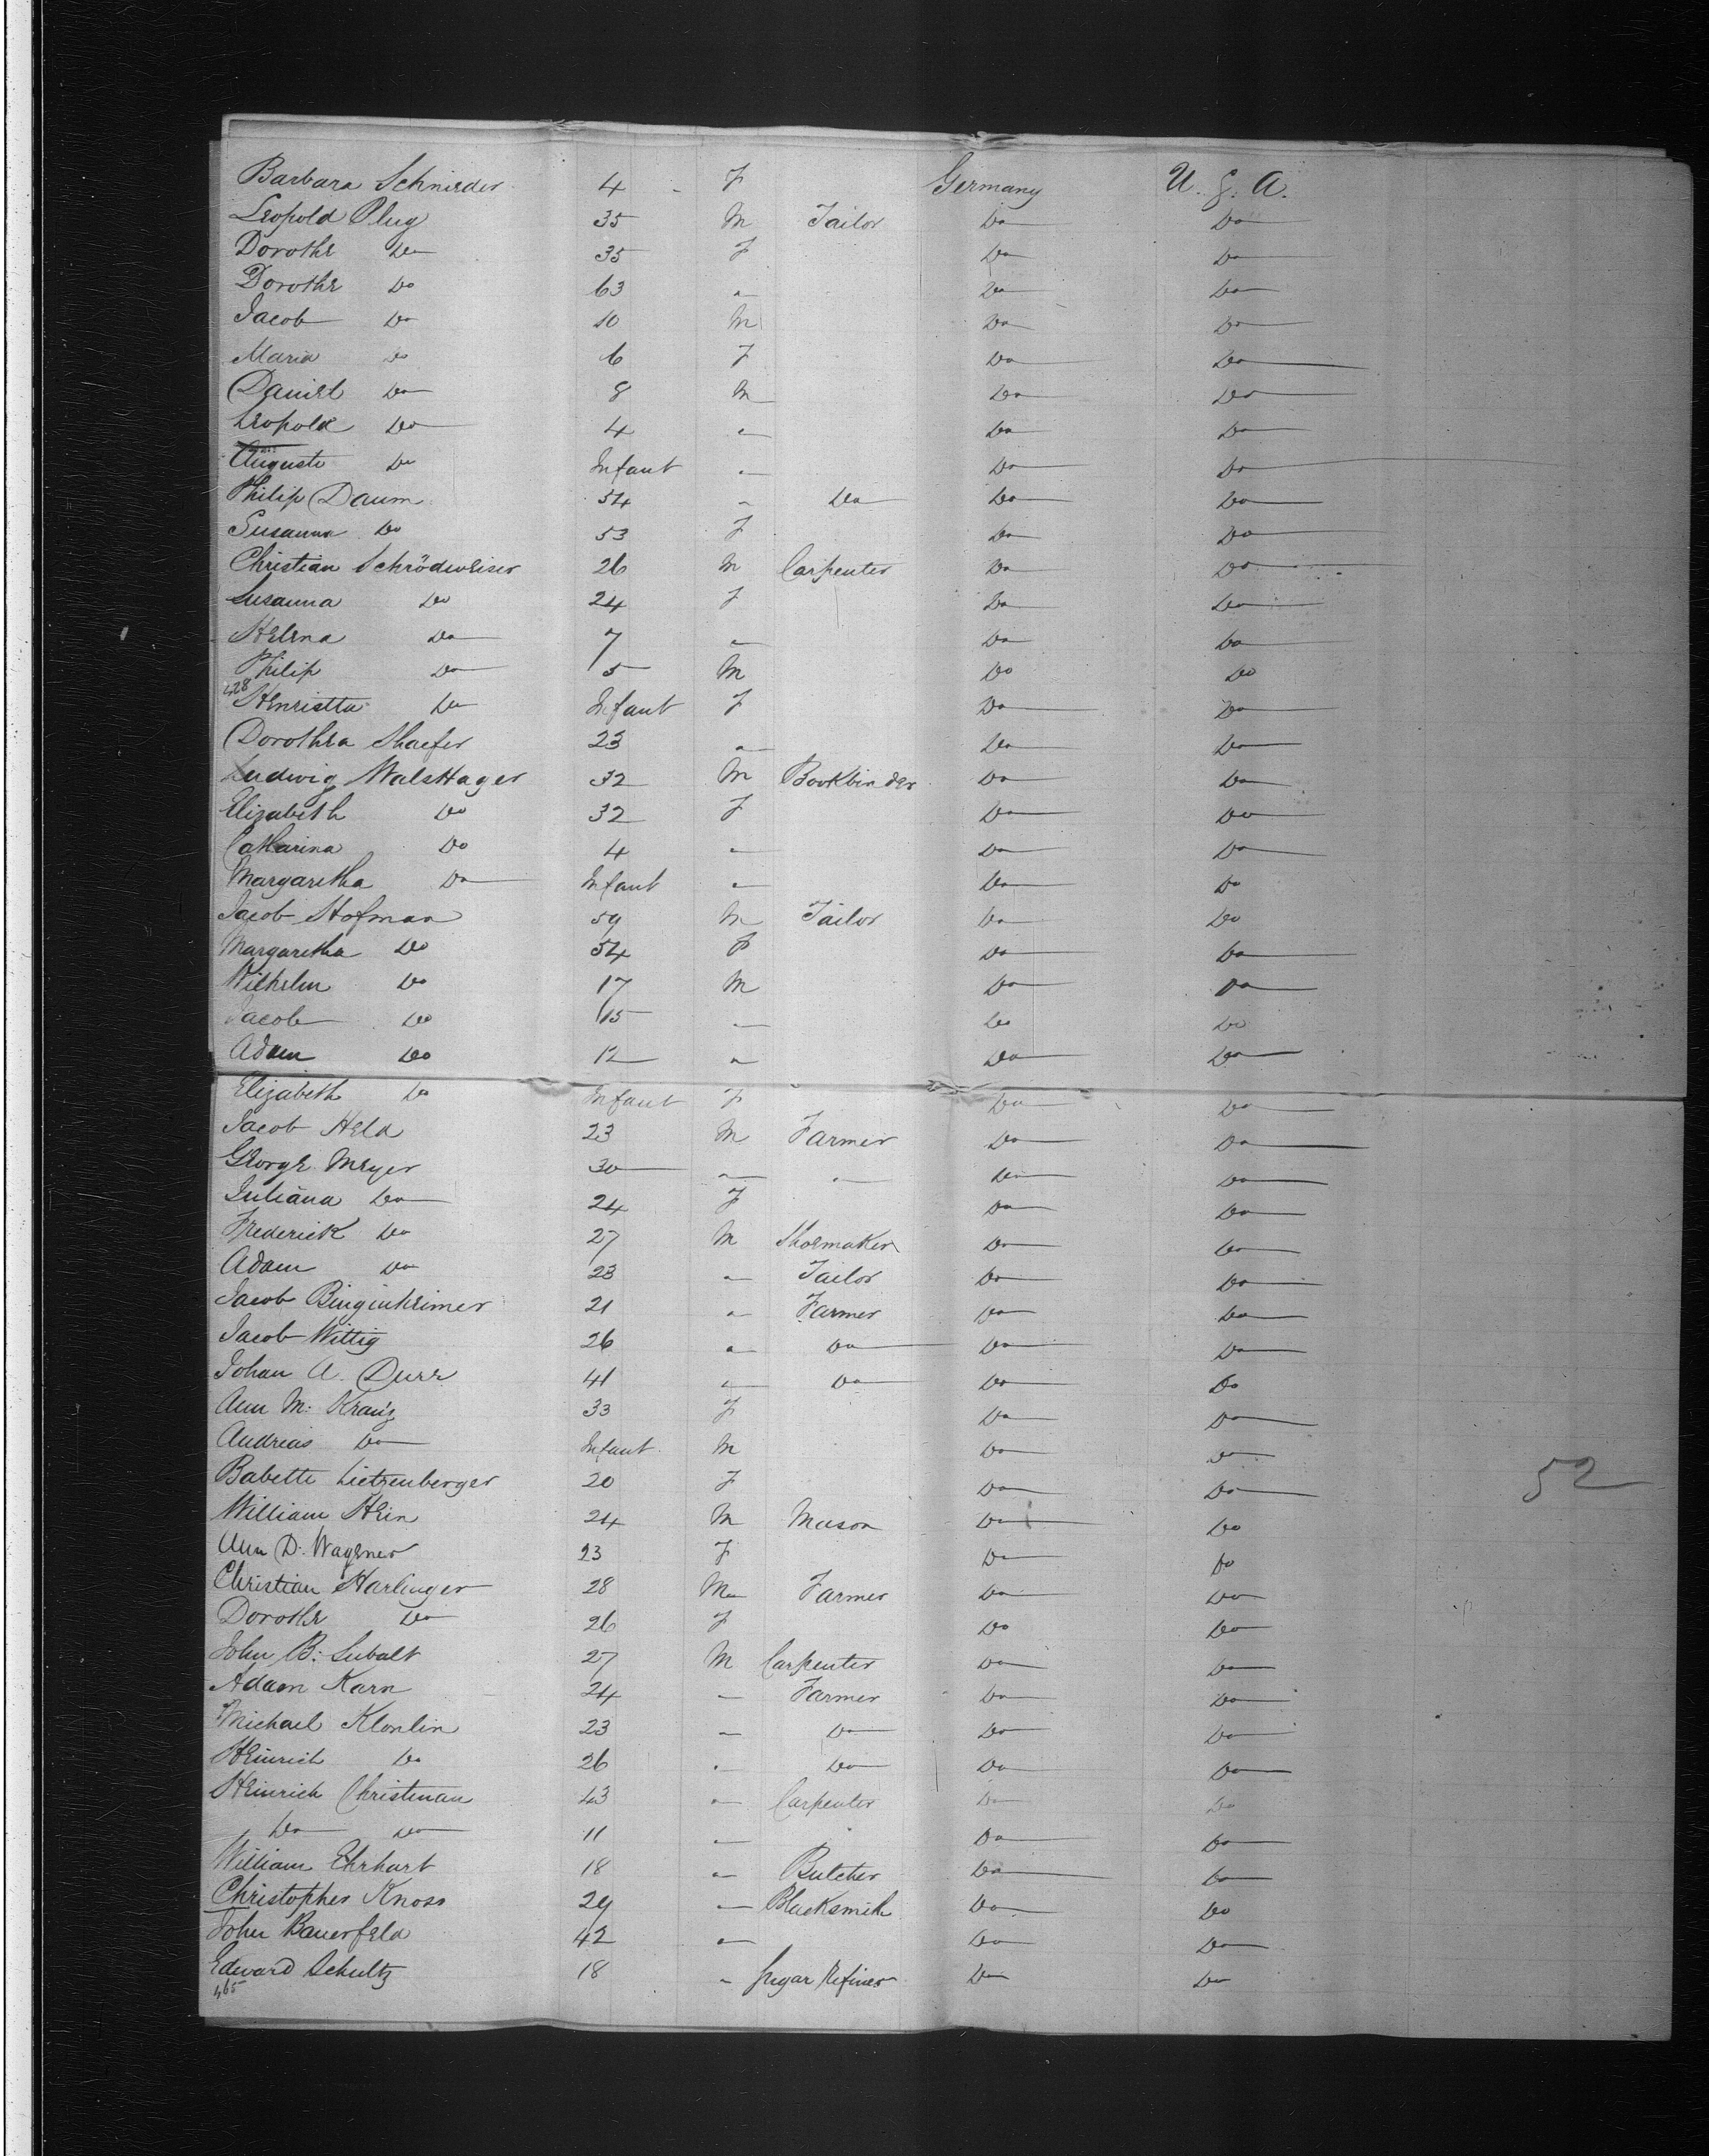 Barbara Schnieder 4 - F Germany U. S. A.
Leopold Plug 35 M Tailor Do Do
Dorothe Do 35 F Do Do
Dorothe Do 63 " Do Do
Jacob Do 10 M Do Do
Maria Do 6 F Do Do
Daniel Do 8 M Do Do
Leopold Do 4 " Do Do
Auguste Do Infant " Do Do
Philip Daum 54 " Do Do Do
Susanna Do 53 F Do Do
Christian Schrödweiser 26 M Carpenter Do Do
Susanna Do 24 F Do Do
Helena Do 7 " Do Do
Philip Do 5 M Do Do
428 Henrietta Do Infant F Do Do
Dorothea Shaefer 23 " Do Do
Ludwig Walshager 32 M Bookbinder Do Do
Elizabeth Do 32 F Do Do
Catharina Do 4 " Do Do
Margaretha Do Infant " Do Do
Jacob Hofman 59 M Tailor Do Do
Margaretha Do 54 F Do Do
Wilhelm Do 17 M Do Do
Jacob Do 15 " Do Do
Adam Do 12 " Do Do
Elizabeth Do Infant F Do Do
Jacob Held 23 M Farmer Do Do
George Meyer 30 " " Do Do
Juliana Do 24 F Do Do
Frederick Do 27 M Shoemaker Do Do
Adam Do 23 " Tailor Do Do
Jacob Binginheimer 21 " Farmer Do Do
Jacob Wittig 26 " Do Do Do
Johan A. Durr 41 " Do Do Do
Ann M: Kranz 33 F Do Do
Andreas Do Infant M Do Do
Babette Lietzenberger 20 F Do Do
52
William Hein 24 M Mason Do Do
Ann D. Wagener 23 F Do Do
Christian Harlinger 28 M Farmer Do Do
Dorothe Do 26 F Do Do
John B: Subalt 27 M Carpenter Do Do
Adam Karn 24 " Farmer Do Do
Michael Klonlin 23 " Do Do Do
Heinrich Do 26 " Do Do Do
Heinrich Christman 43 " Carpenter Do Do
Do Do 11 " Do Do
William Ehrhart 18 " Butcher Do Do
Christopher Knoss 29 " Blacksmith Do Do
John Bauerfeld 42 " Do Do
Edward Schultz 18 " Sugar Refiner Do Do
465